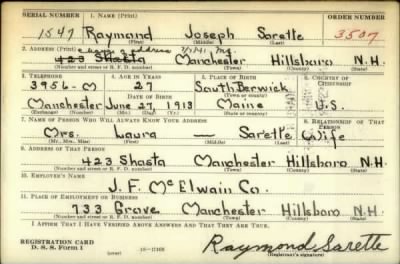 SERIAL NUMBER 1. NAME (Print) ORDER NUMBER
1547 Raymond Joseph Sarette 3507
(First) (Middle) (Last)
2. ADDRESS (Print)
423 Shasta Manchester Hillsboro N.H.
(Number and street or R. F. D. number) (Town) (County) (State)
3. TELEPHONE 4. AGE IN YEARS 5. PLACE OF BIRTH 6. COUNTRY OF CITIZENSHIP
3956-M 27 South Berwick
DATE OF BIRTH (Town or county)
Manchester June 27, 1913 Maine U.S.
(Exchange) (Number) (Mo.) (Day) (Yr.) (State or country)
7. NAME OF PERSON WHO WILL ALWAYS KNOW YOUR ADDRESS 8. RELATIONSHIP OF THAT PERSON
Mrs. Laura — Sarette Wife
(Mr., Mrs., Miss) (First) (Middle) (Last)
9. ADDRESS OF THAT PERSON
423 Shasta Manchester Hillsboro N.H.
(Number and street or R. F. D. number) (Town) (County) (State)
10. EMPLOYER'S NAME
J. F. McElwain Co.
11. PLACE OF EMPLOYMENT OR BUSINESS
733 Grove Manchester Hillsboro N.H.
(Number and street or R. F. D. number) (Town) (County) (State)
I AFFIRM THAT I HAVE VERIFIED ABOVE ANSWERS AND THAT THEY ARE TRUE.
REGISTRATION CARD
D. S. S. Form 1 (over) Raymond Sarette
(Registrant's signature)